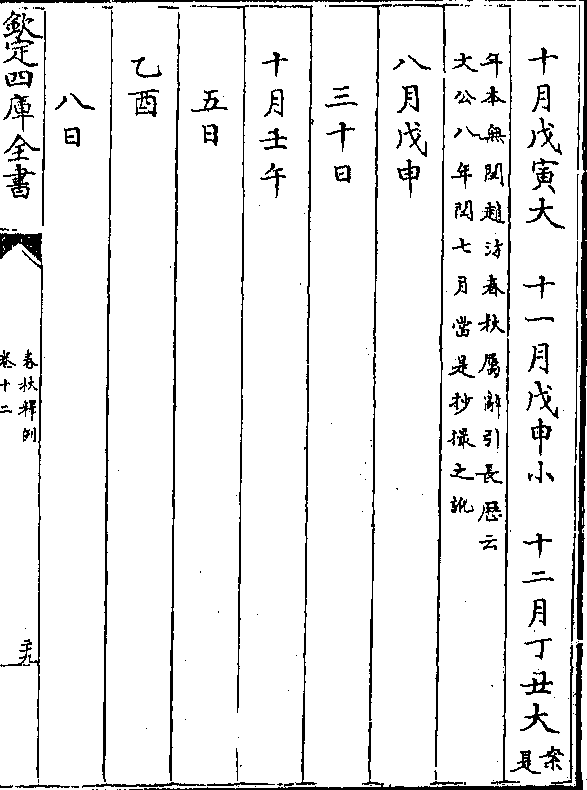 十月戊寅大　十一月戊申小　十二月丁丑大案是
年本無閏趙汸春秋屬辭引長厯云
文公八年閏七月當是抄撮之訛
八月戊申
三十日
十月壬午
五日
乙酉
八日
欽定四庫全書
春秋釋例
卷十二
二十九